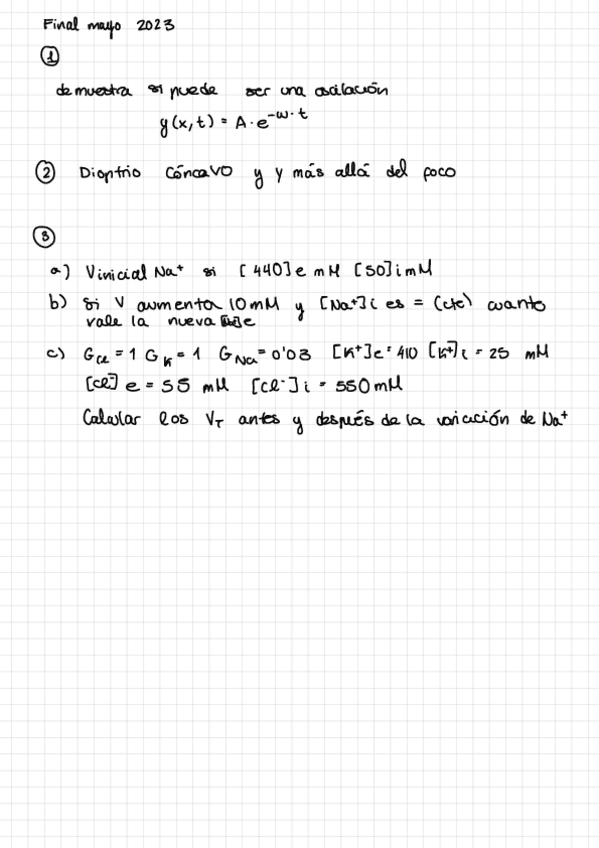 Final mayo 2023
1
demuestra si puede ser una oscilación
y(x,t) = A·e^-w·t
2 Dioptrio cóncavo y y más allá del foco
3
a) Vinicial Na+ si [440]e mM [50]i mM
b) Si V aumenta 10mM y [Na+]i es = (cte) cuanto
vale la nueva e
c) Gcl = 1 GK = 1 GNa = 0'03 [K+]e = 410 [K+]i = 25 mM
[cl]e = 55 mM [cl-]i = 550 mM
Calcular los VT antes y después de la variación de Na+